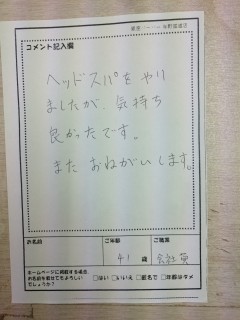 コメント記入欄
ヘッドスパをやり
ましたが、気持ち
良かったです。
また おねがいします。
お名前
ご年齢
ご職業
41 歳
会社員
ホームページに掲載する場合
お名前を載せてもよろしい
でしょうか?
□はい □いいえ □匿名で □年齢はダメ